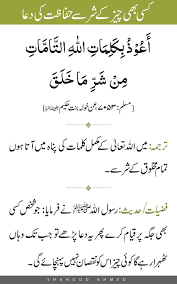 کسی بھی چیز کے شر سے حفاظت کی دعا
أَعُوذُ بِكَلِمَاتِ اللهِ التَّامَّاتِ
مِنْ شَرِّ مَا خَلَقَ
[مسلم: ۷۰۵۳، عن خولہ بنت حکیم]
ترجمہ: میں اللہ تعالیٰ کے مکمل کلمات کی پناہ میں آتا ہوں
تمام مخلوق کے شر سے۔
فضیلت/حدیث: رسول اللہ ﷺ نے فرمایا: جو شخص کسی
بھی جگہ پر قیام کرے پھر یہ دعا پڑھے تو جب تک وہاں
ٹھہرا رہے گا کوئی چیز اس کو نقصان نہیں پہنچائے گی۔
SHAHOOD AHMED